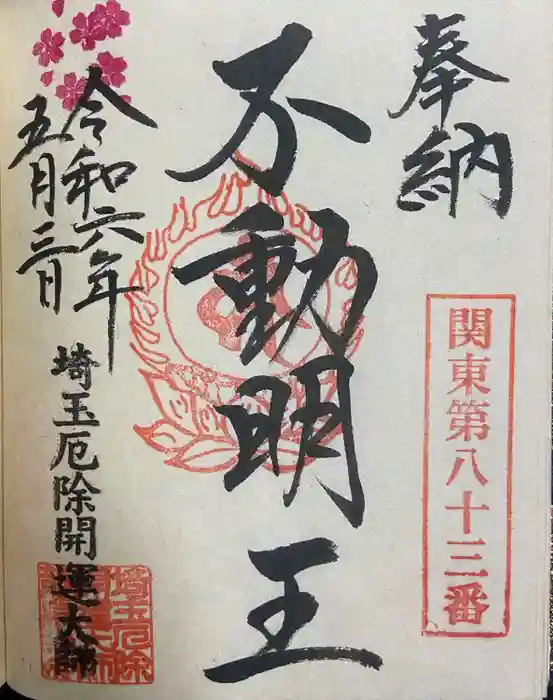 奉納
関東第八十三番
不動明王
令和六年
五月三日
埼玉厄除開運大師